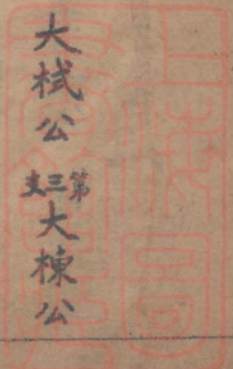 大栻公第三支大棟公